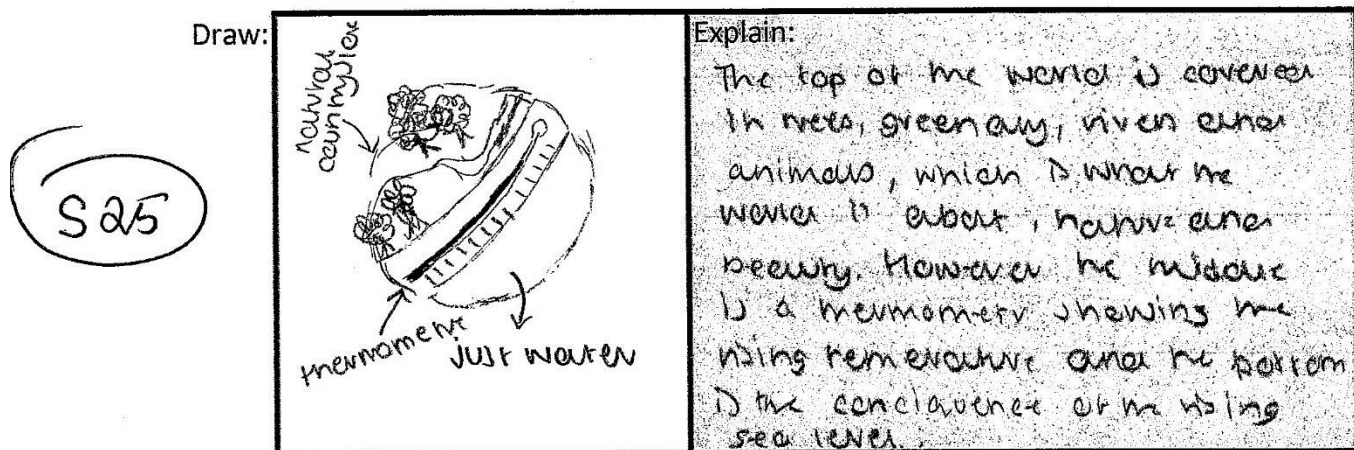 Draw:
natural
countryside
S25
thermometer
just water
Explain:
The top of the world is covered
in trees, greenary, rivers and
animals, which is what the
world is about, nature and
beauty. However the middle
is a thermometer showing the
rising temerature and the bottom
is the of the rising
sea level.